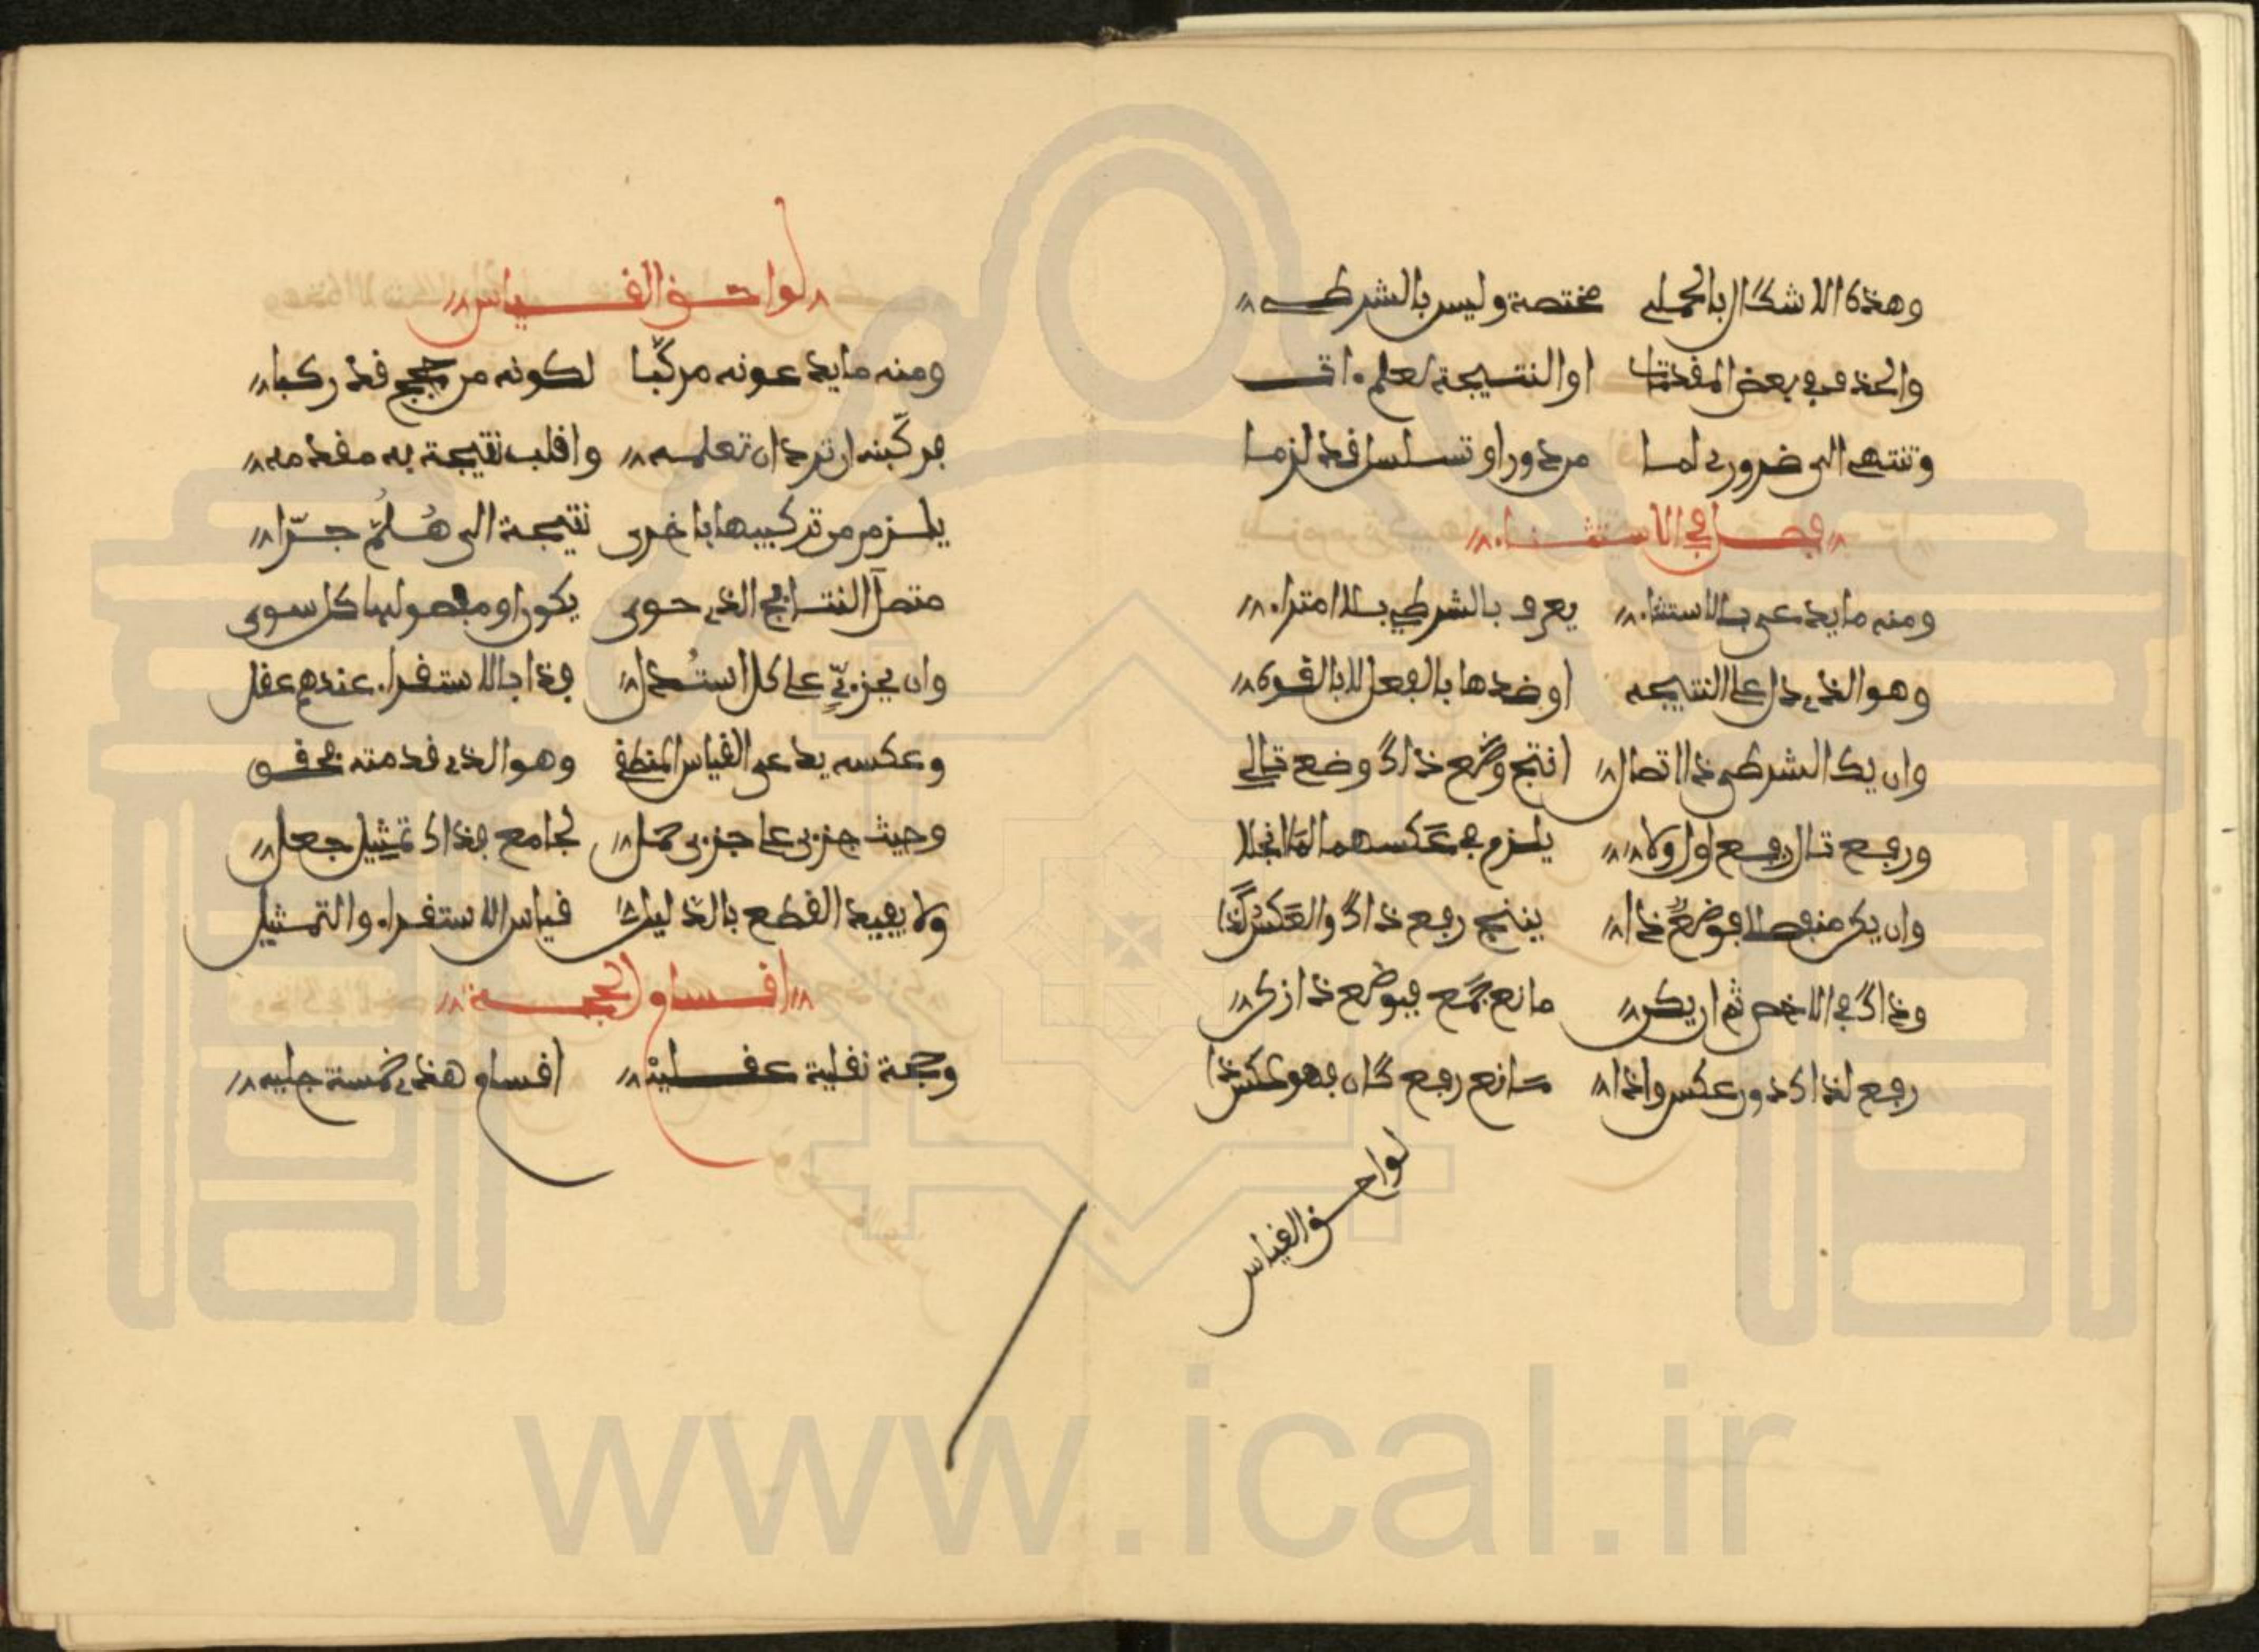 وهذه الاشكال بالحملي مختصة وليس بالشرطي
والحذف في بعض المقدمات او النتيجة لعلم ءات
وتنتهي الى ضرورة لما من دور او تسلسل قد لزما
فصل في الاستثناء
ومنه ما يدعى بالاستثناء يعرف بالشرطي بلا امتراء
وهو الذي دل على النتيجه او ضدها بالفعل لا بالقوه
وان يك الشرطي ذا اتصال انتج وضع ذاك وضع تالي
ورفع تال رفع اول ولا يلزم في عكسهما لما انجلا
وان يكن منفصلا فوضع ذا ينتج رفع ذاك والعكس كذا
وذاك في الاخص ثم ان يكن مانع جمع فبوضع ذا زكن
رفع لذاك دون عكس واذا مانع رفع كان فهو عكس ذا
لواحق القياس
لواحق القياس
ومنه ما يدعونه مركبا لكونه من حجج قد ركبا
فركبنه ان ترد ان تعلمه واقلب نتيجة به مقدمه
يلزم من تركيبها باخرى نتيجة الى هلم جرا
متصل النتائج الذي حوى يكون او مفصولها كل سوى
وان بجزئي على كل استدل فذا بالاستقراء عندهم عقل
وعكسه يدعى القياس المنطقي وهو الذي قدمته فحقق
وحيث جزئي على جزئي حمل لجامع فذاك تمثيل جعل
ولا يفيد القطع بالدليل قياس الاستقراء والتمثيل
اقسام الحجة
وحجة نقلية عقلية اقسام هذي خمسة جليه
www.ical.ir